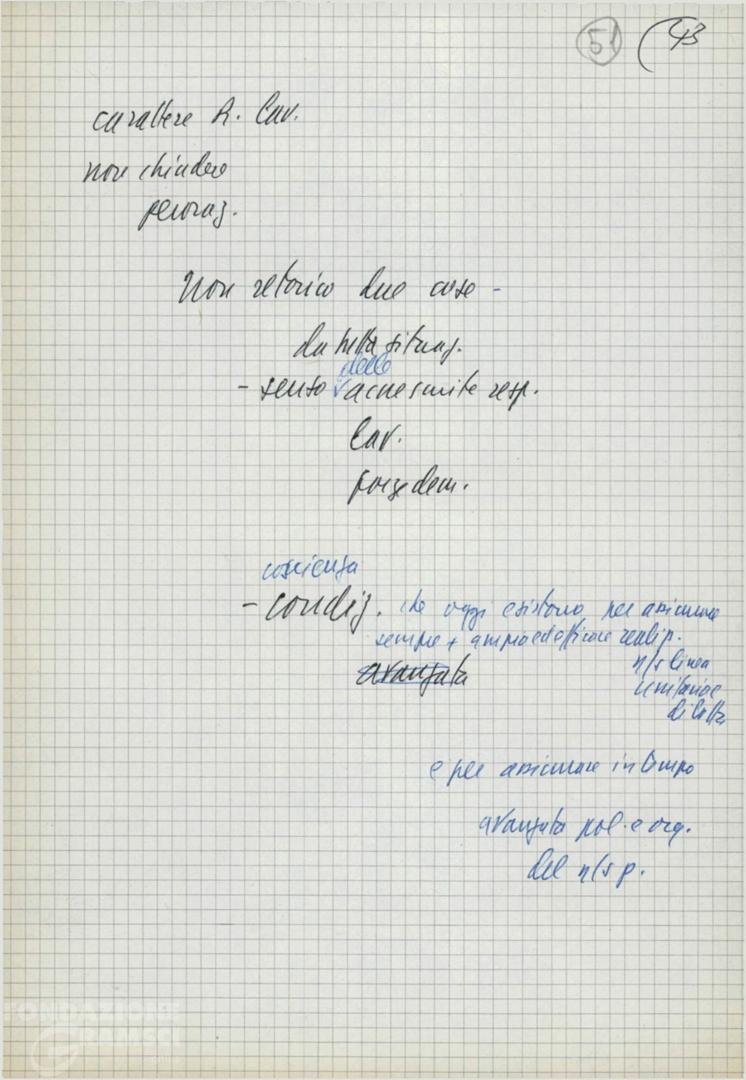 51 43
carattere R. Lav.
non chiudere
peroraz.
Non retorico due cose -
da tutta situaz.
delle
- senso accresciute resp.
Lav.
forze dem.
coscienza
- condiz. che oggi esistono per assicurare
sempre + ampia ed efficace realiz.
n/s linea
unitaria e
di lotta
avanzata
e per assicurare in tempo
avanzata pol. e org.
del n/s p.
FONDAZIONE
GRAMSCI